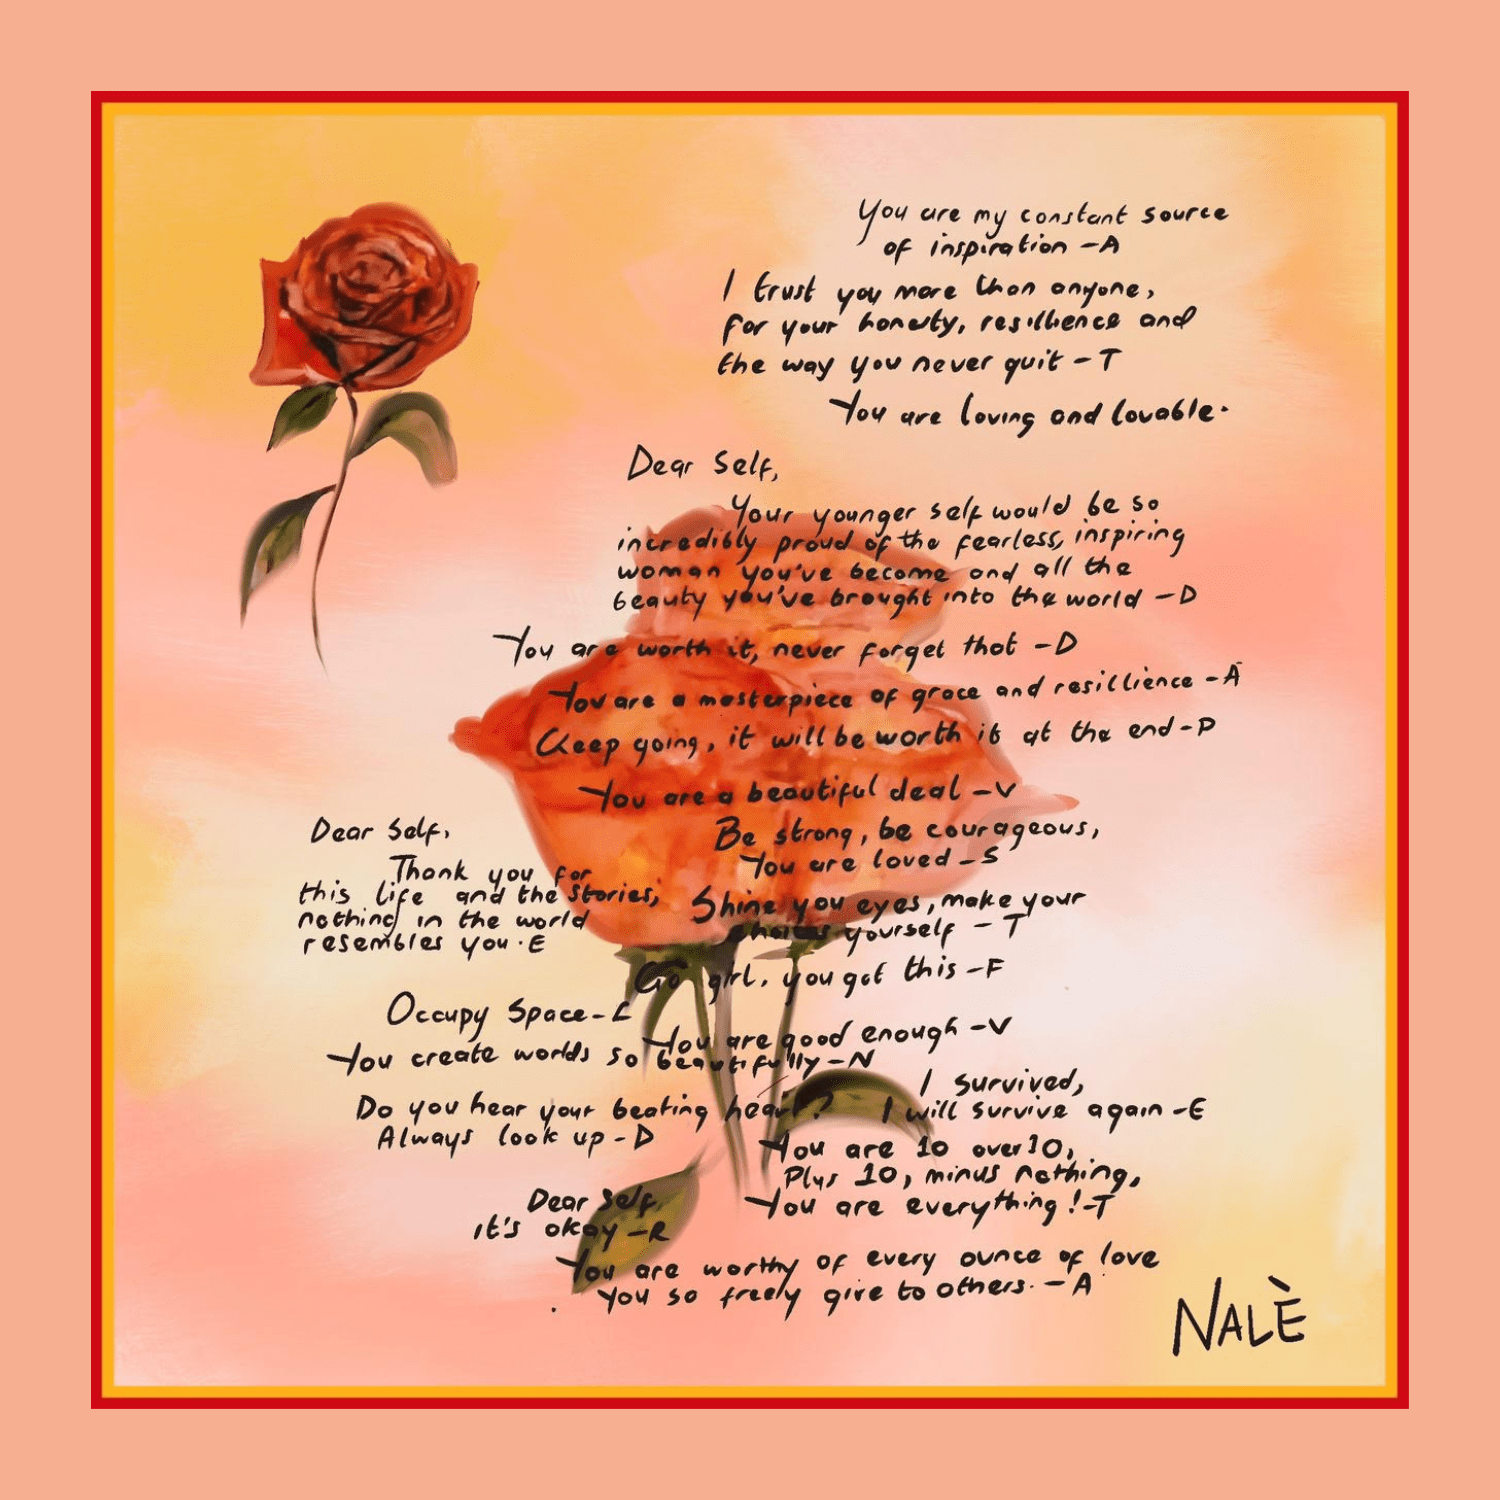 You are my constant source
of inspiration -A
I trust you more than anyone,
For your honesty, resillience and
the way you never quit - T
You are loving and lovable.
Dear Self,
Your younger self would be so
incredibly proud of the fearless, inspiring
woman you've become and all the
beauty you've brought into the world - D
You are worth it, never forget that - D
You are a masterpiece of grace and resillience - A
Keep going, it will be worth it at the end - P
You are a beautiful deal - V
Be strong, be courageous,
You are loved - S
Dear Self,
Thank you for
this life and the stories,
nothing in the world
resembles you. E
Shine you eyes, make your
choices yourself - T
Go girl, you got this - F
Occupy Space - L
You are good enough - V
You create worlds so beautifully - N
I survived,
I will survive again - E
Do you hear your beating heart?
Always look up - D
You are 10 over 10,
Plus 10, minus nothing,
You are everything! - T
Dear Self,
it's okay - R
You are worthy of every ounce of love
You so freely give to others. - A
NALÈ